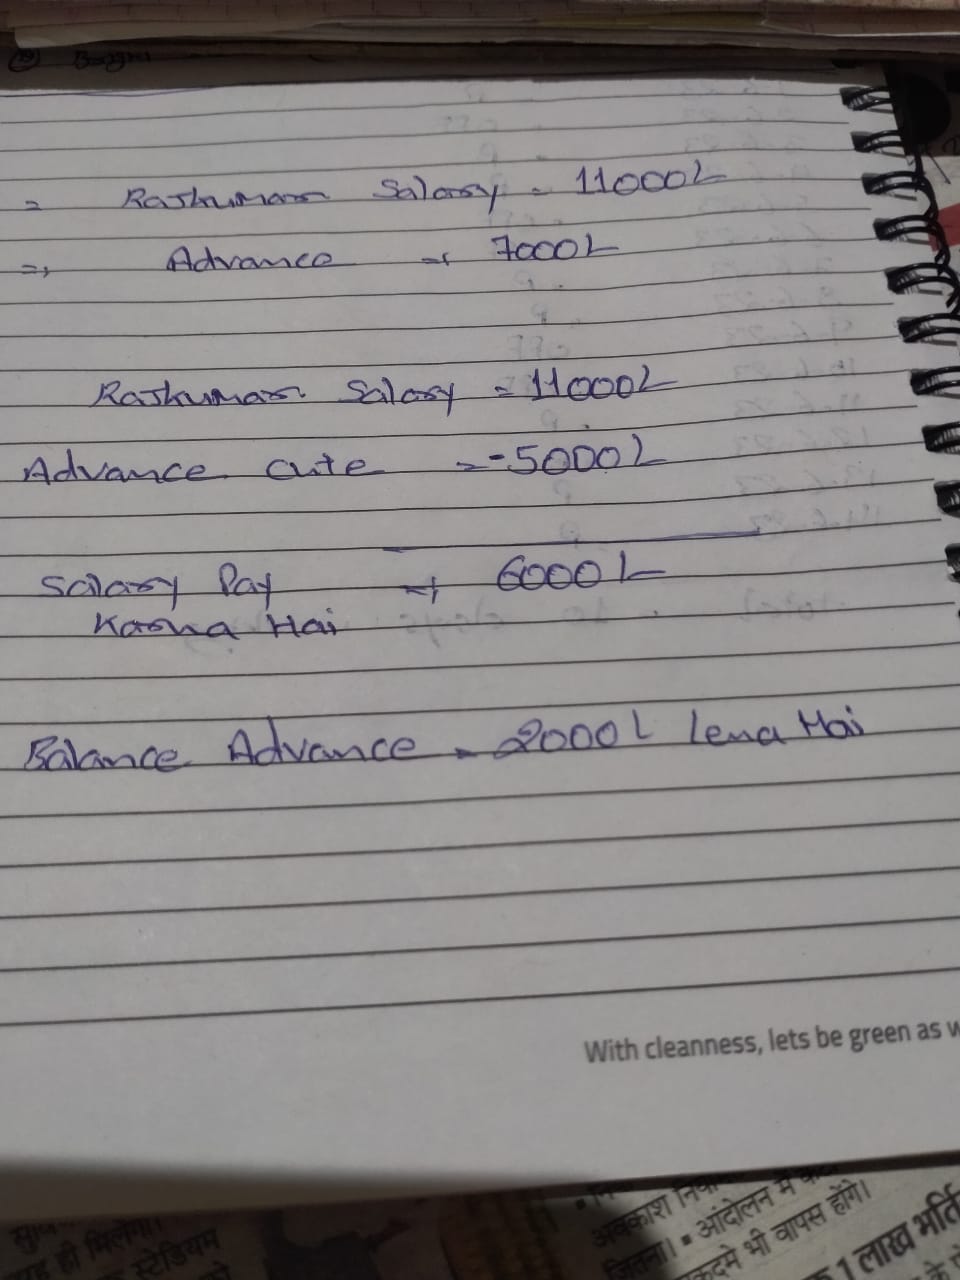 = Rajkumar Salary = 11000/-
=, Advance = 7000/-
Rajkumar Salary = 11000/-
Advance cute = -5000/-
Salary Pay = 6000/-
Karna Hai
Balance Advance = 2000/- Lena Hai
With cleanness, lets be green as w
अवकाश
आंदोलन में
कदमे भी वापस होंगे।
1 लाख भर्ति
ह ही मिलेगा।
स्टेडियम